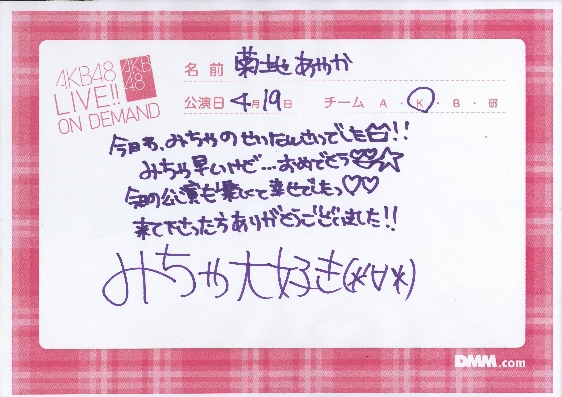 AKB48
LIVE!!
ON DEMAND
AKB
48
名前 菊地あやか
公演日 4月19日 チーム A・K・B・研
今日は、みちゃのせいたんさいでした!!
みちゃ早いケド…おめでとう♡☆
今日の公演も楽しくて幸せでしたっ♡♡
来て下さった方ありがとうございました!!
みちゃ大好き(*∀*)
DMM.com